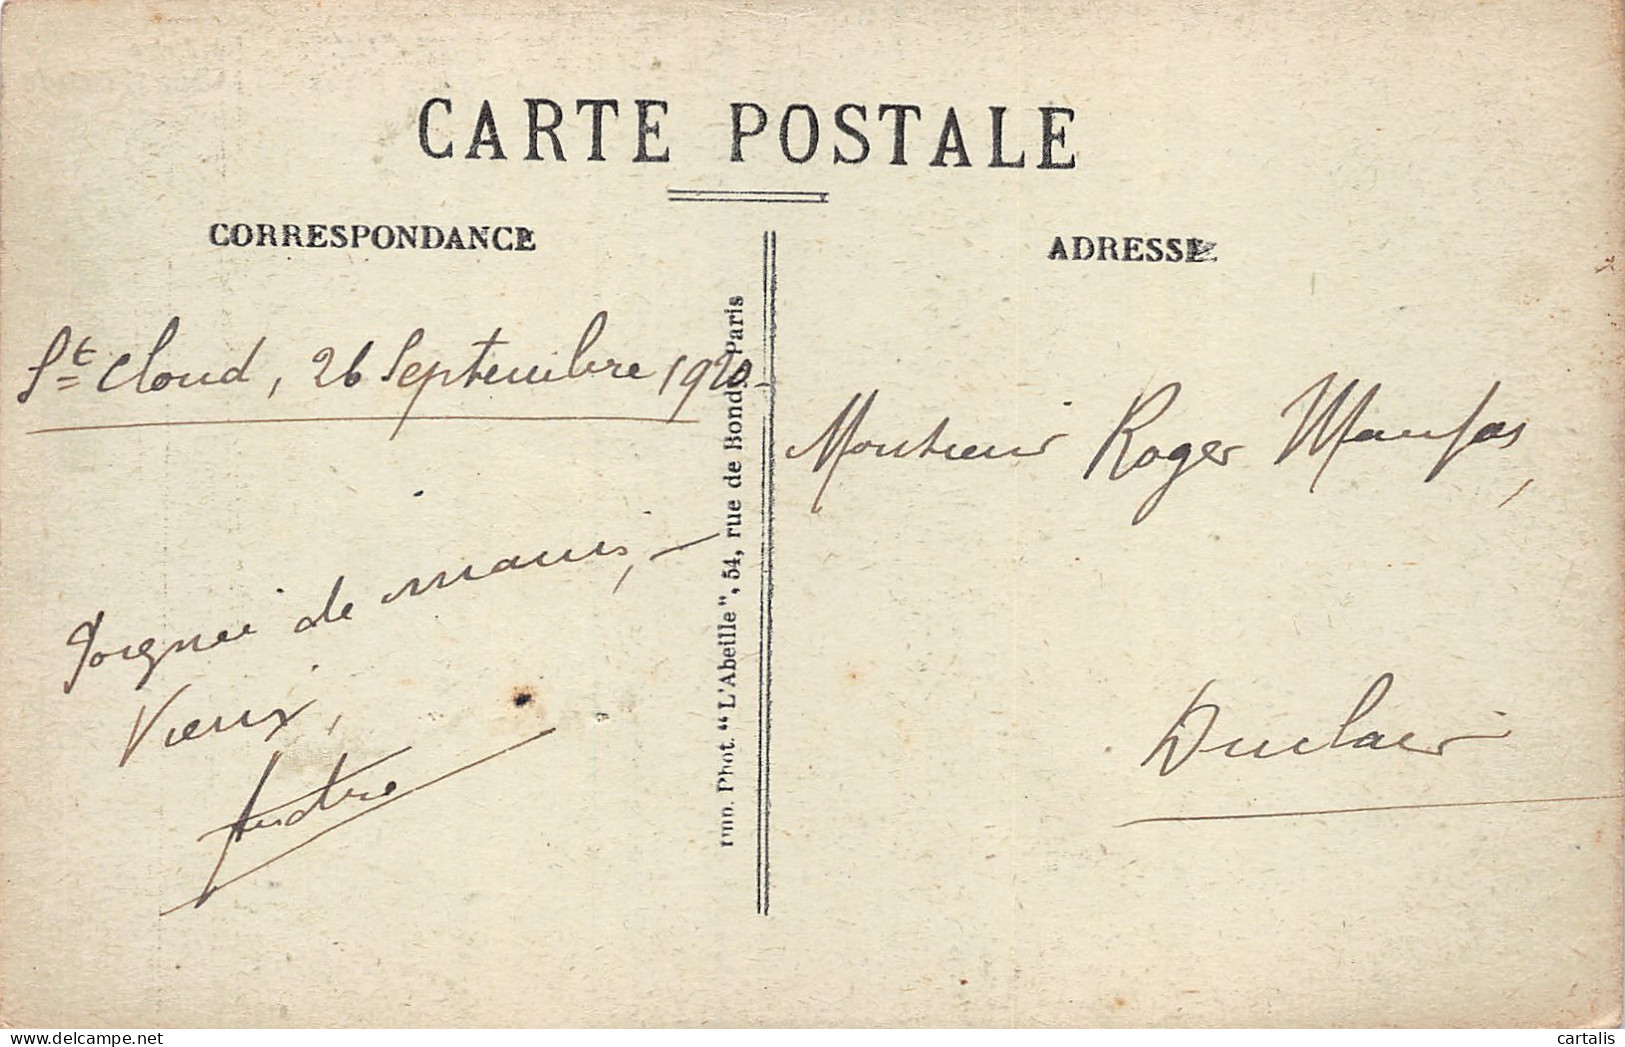 CARTE POSTALE
CORRESPONDANCE
ADRESSE
St Cloud, 26 Septembre 1920-
Poignée de mains, -
Vieux,
André
Imp. Phot. "L'Abeille", 54, rue de Bondy Paris
Monsieur Roger
Duclair
cartalis